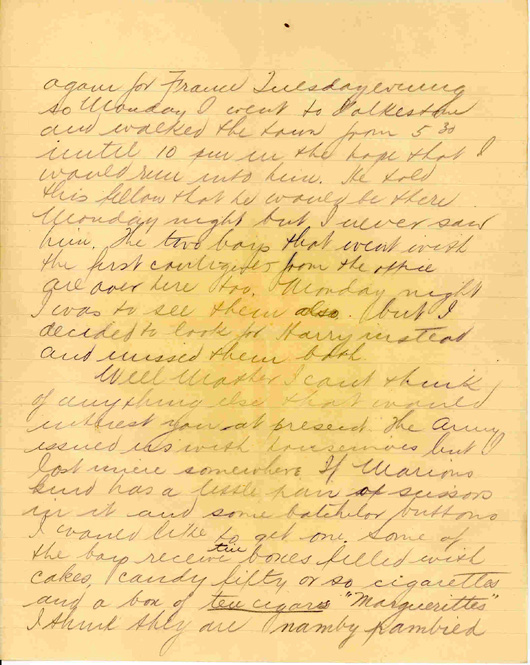 again for France Tuesday evening
so Monday I went to Folkeston
and walked the town from 5 30
until 10 pm in the hope that I
would run into him. He told
this fellow that he would be there
Monday night but I never saw
him. The two boys that went with
the first contingent from the office
are over here too. Monday night
I was to see them also. but I
decided to look for Harry instead
and missed them both.
Well Mother I cant think
of anything else that would
interest you at present. The Army
issued us with housewives but I
lost mine somewhere. If Marions
kind has a little pair of scissors
in it and some batchlor buttons
I would like to get one. Some of
the boys receive tin boxes filled with
cakes, candy fifty or so cigarettes
and a box of ten cigars "Marguerittes"
I think they are namby pambied